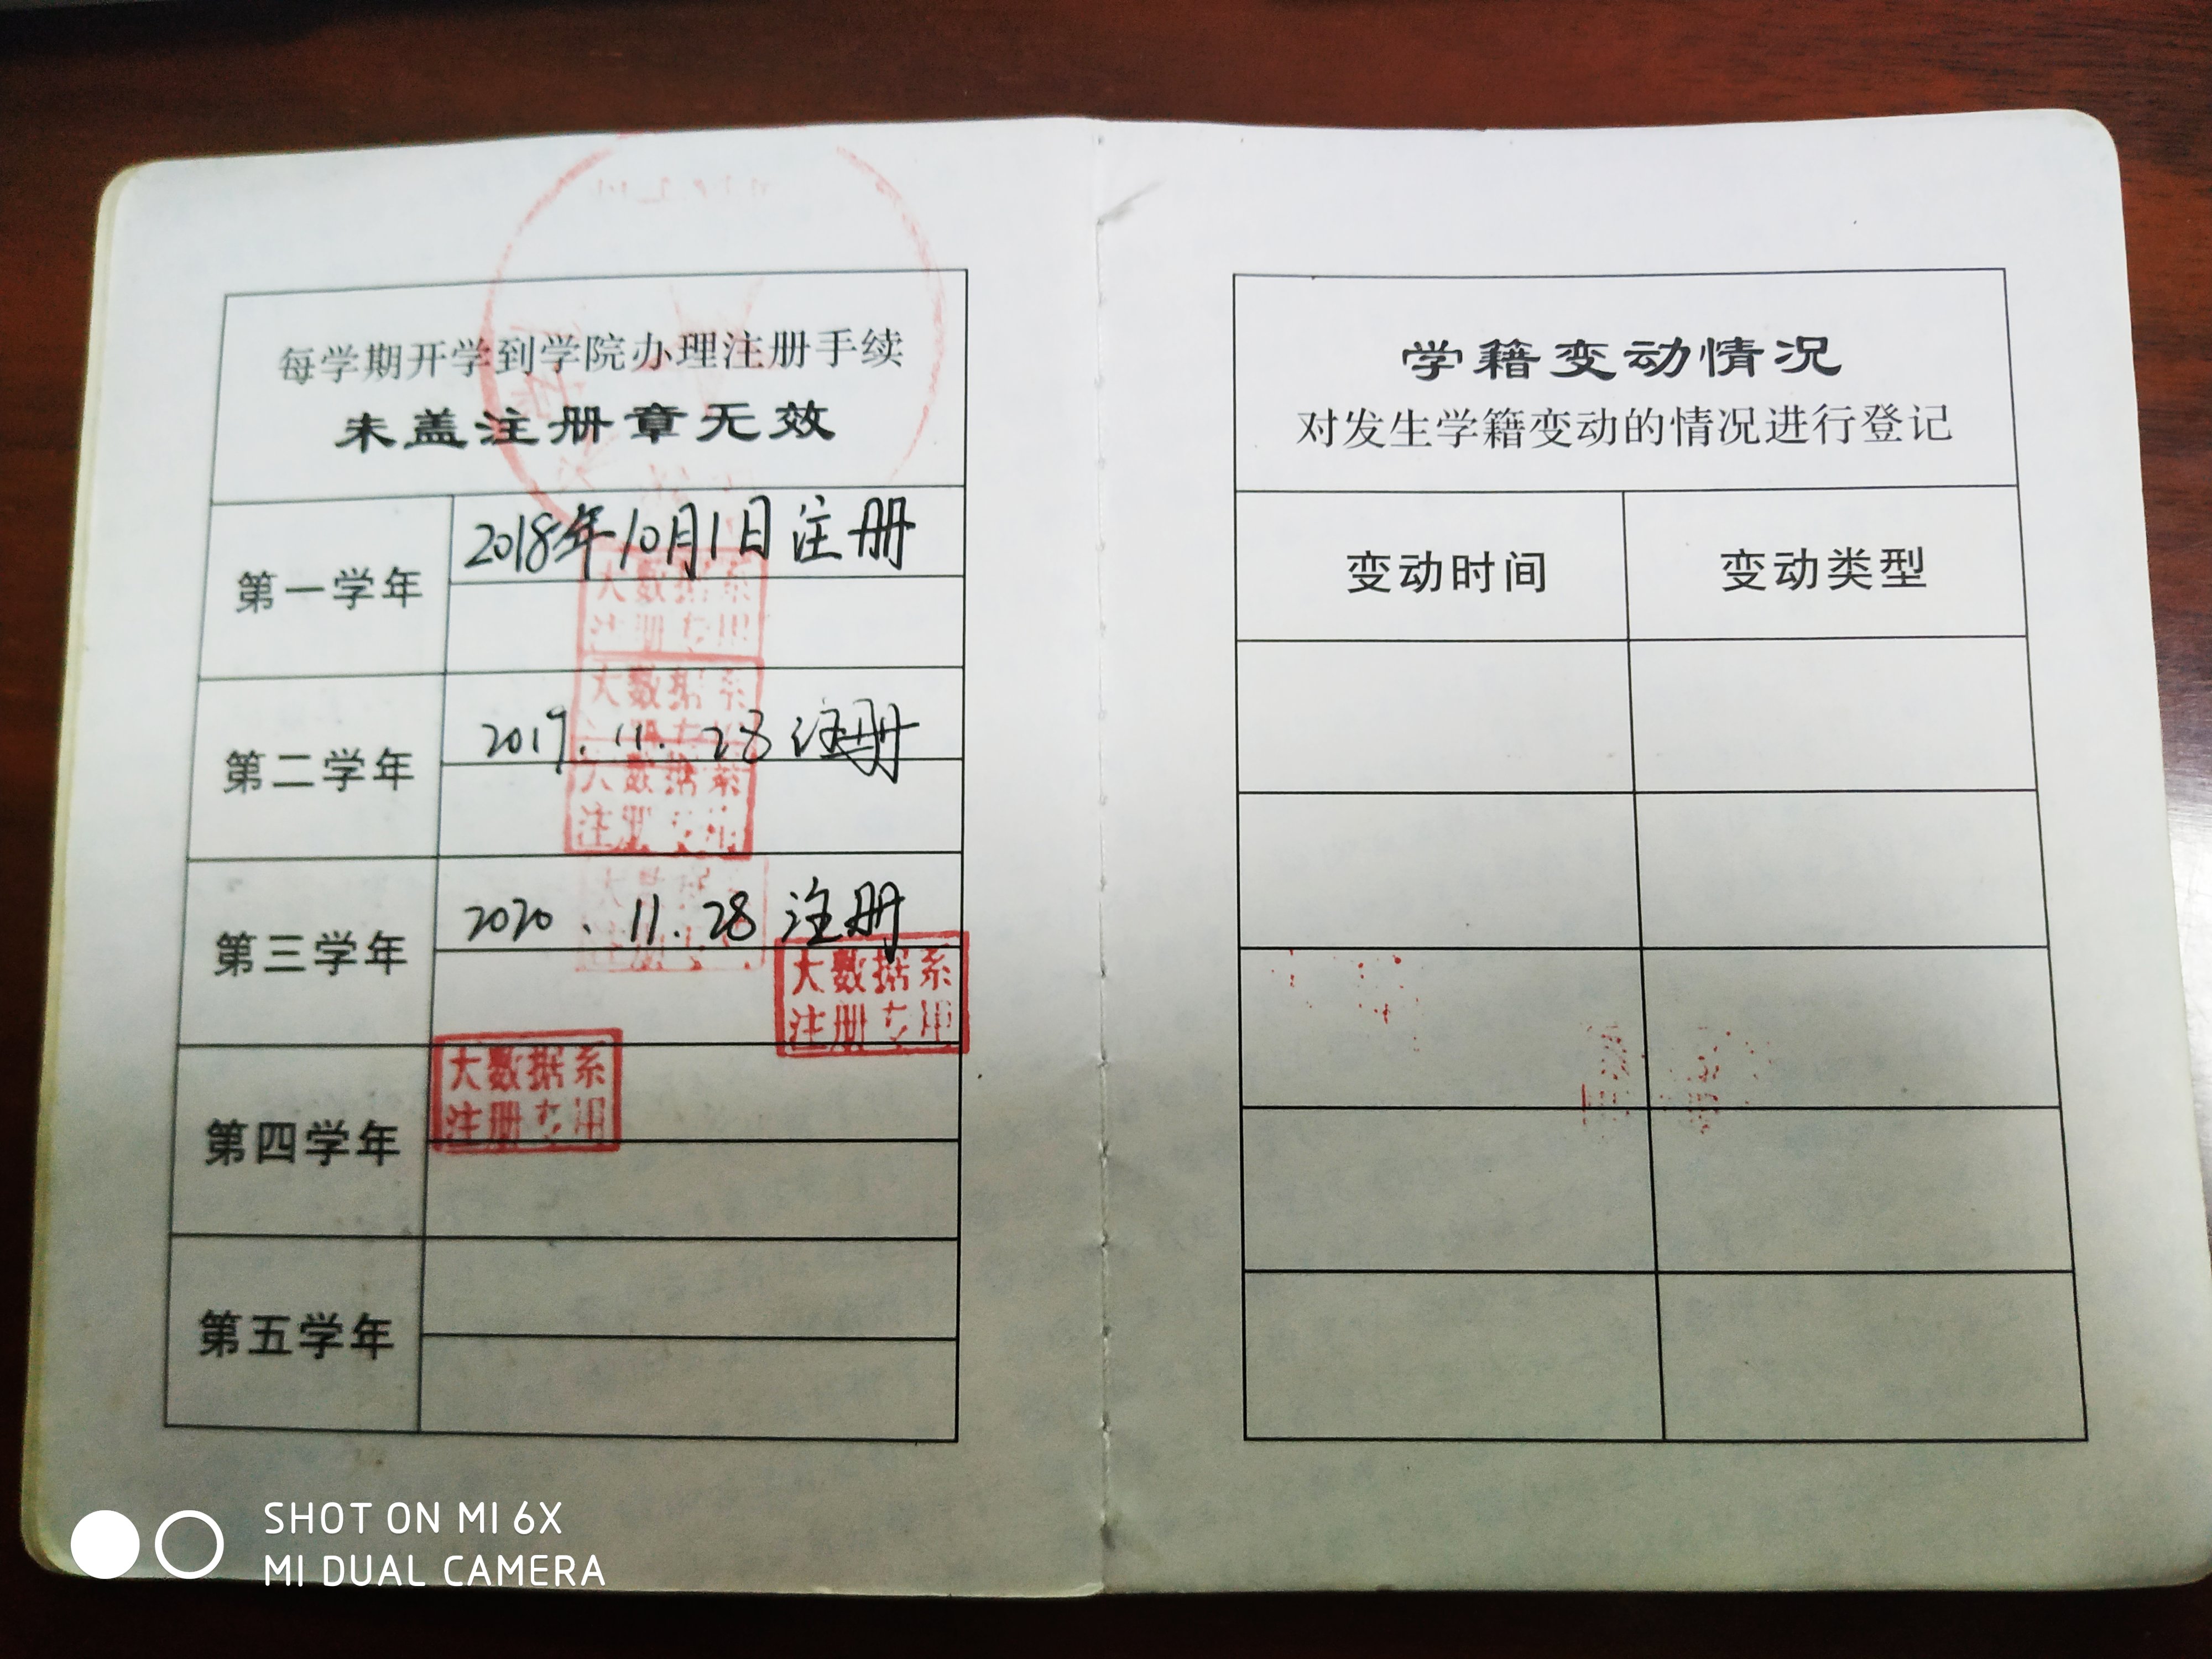 每学期开学到学院办理注册手续
未盖注册章无效
第一学年
2018年10月1日注册
大数据系
注册专用
第二学年
大数据系
2019.11.28注册
大数据系
注册专用
第三学年
2020.11.28注册
大数据系
注册专用
第四学年
大数据系
注册专用
第五学年
学籍变动情况
对发生学籍变动的情况进行登记
变动时间 变动类型
SHOT ON MI 6X
MI DUAL CAMERA